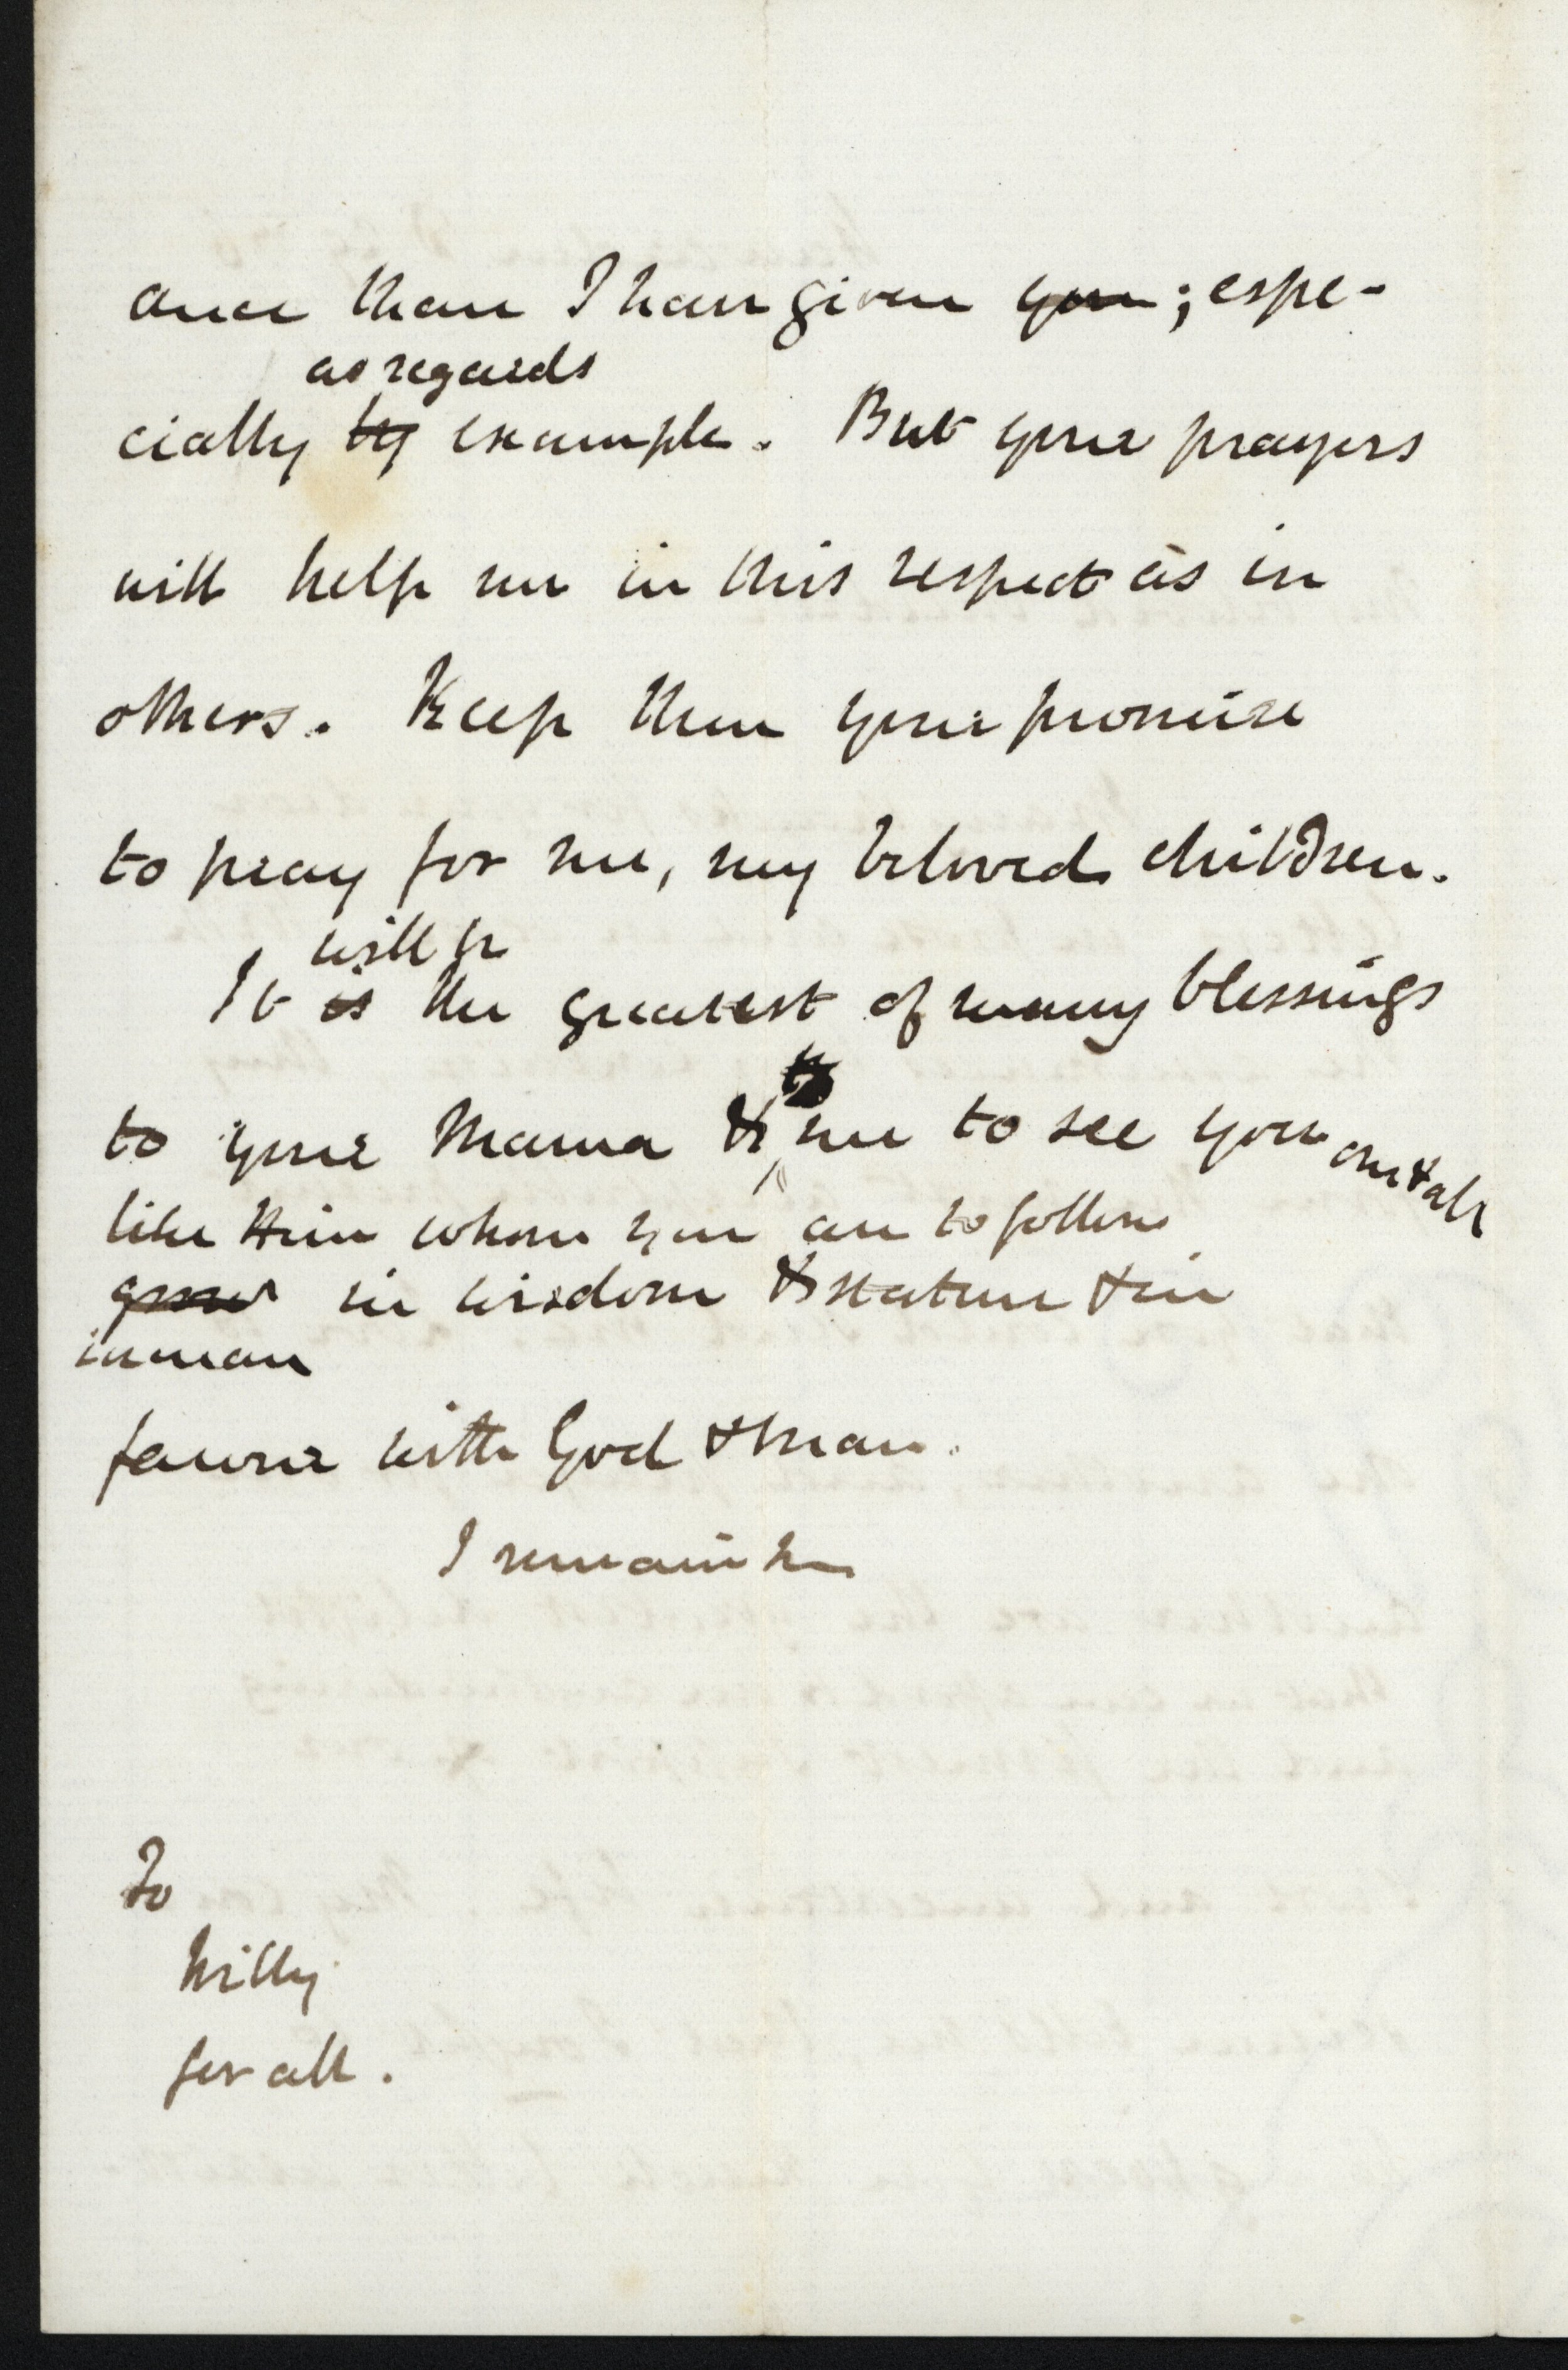 ance than I have given you; espe-
as regards
cially by example. But your prayers
will help me in this respect as in
others. Keep then your promise
to pray for me, my beloved children.
will be
It is the greatest of many blessings
to your Mama & to me to see you one & all
like Him whom you are to follow
grow in wisdom & stature & in
favour with God & Man.
I remain
To
Willy
for all.